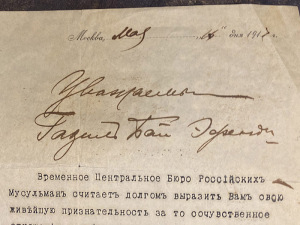 Москва, Мая 16" дня 191
Уважаемый
Бай Эфенди
Временное Центральное Бюро Россійскихъ
Мусульманъ считаетъ долгомъ выразить Вамъ свою
живѣйшую признательность за то сочувственное